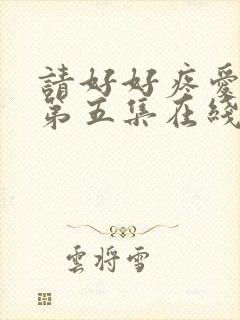 請好好疼愛
第五集在綫
雲將雪